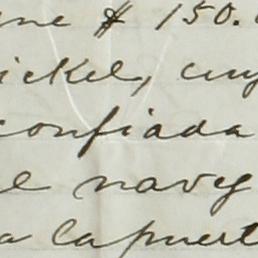 ne $ 150.
ickel, cuy
confiada
e navy
a la puert